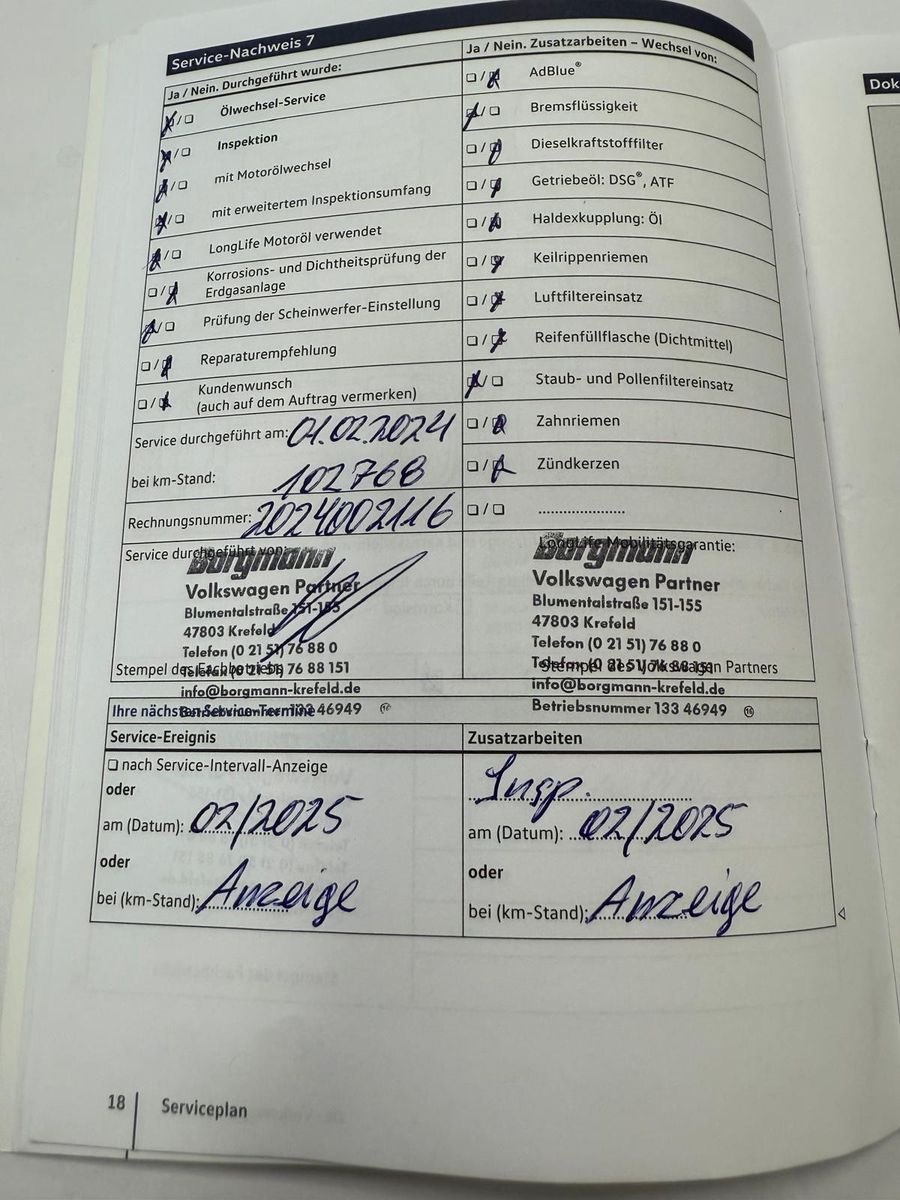 Service-Nachweis 7
Ja / Nein. Durchgeführt wurde:
☒/☐ Ölwechsel-Service
☒/☐ Inspektion
☒/☐ mit Motorölwechsel
☒/☐ mit erweitertem Inspektionsumfang
☒/☐ LongLife Motoröl verwendet
☐/☒ Korrosions- und Dichtheitsprüfung der
Erdgasanlage
☒/☐ Prüfung der Scheinwerfer-Einstellung
☐/☒ Reparaturempfehlung
☐/☒ Kundenwunsch
(auch auf dem Auftrag vermerken)
Service durchgeführt am: 01.02.2024
bei km-Stand: 102768
Rechnungsnummer: 2024002116
Service durchgeführt von:
Borgmann
Volkswagen Partner
Blumentalstraße 151-155
47803 Krefeld
Telefon (0 21 51) 76 88 0
Telefax (0 21 51) 76 88 151
Stempel des Fachbetriebs
info@borgmann-krefeld.de
Betriebsnummer 133 46949
Ja / Nein. Zusatzarbeiten – Wechsel von:
☐/☒ AdBlue®
☒/☐ Bremsflüssigkeit
☐/☒ Dieselkraftstofffilter
☐/☒ Getriebeöl: DSG®, ATF
☐/☒ Haldexkupplung: Öl
☐/☒ Keilrippenriemen
☐/☒ Luftfiltereinsatz
☐/☒ Reifenfüllflasche (Dichtmittel)
☒/☐ Staub- und Pollenfiltereinsatz
☐/☒ Zahnriemen
☐/☒ Zündkerzen
☐/☐ ......................
LongLife Mobilitätsgarantie:
Borgmann
Volkswagen Partner
Blumentalstraße 151-155
47803 Krefeld
Telefon (0 21 51) 76 88 0
Telefax (0 21 51) 76 88 151
Stempel des Volkswagen Partners
info@borgmann-krefeld.de
Betriebsnummer 133 46949 ⑯
Ihre nächsten Service-Termine
Service-Ereignis
☐ nach Service-Intervall-Anzeige
oder
am (Datum): 02/2025
oder
bei (km-Stand): Anzeige
Zusatzarbeiten
Insp.
am (Datum): 02/2025
oder
bei (km-Stand): Anzeige
18 Serviceplan
Dok